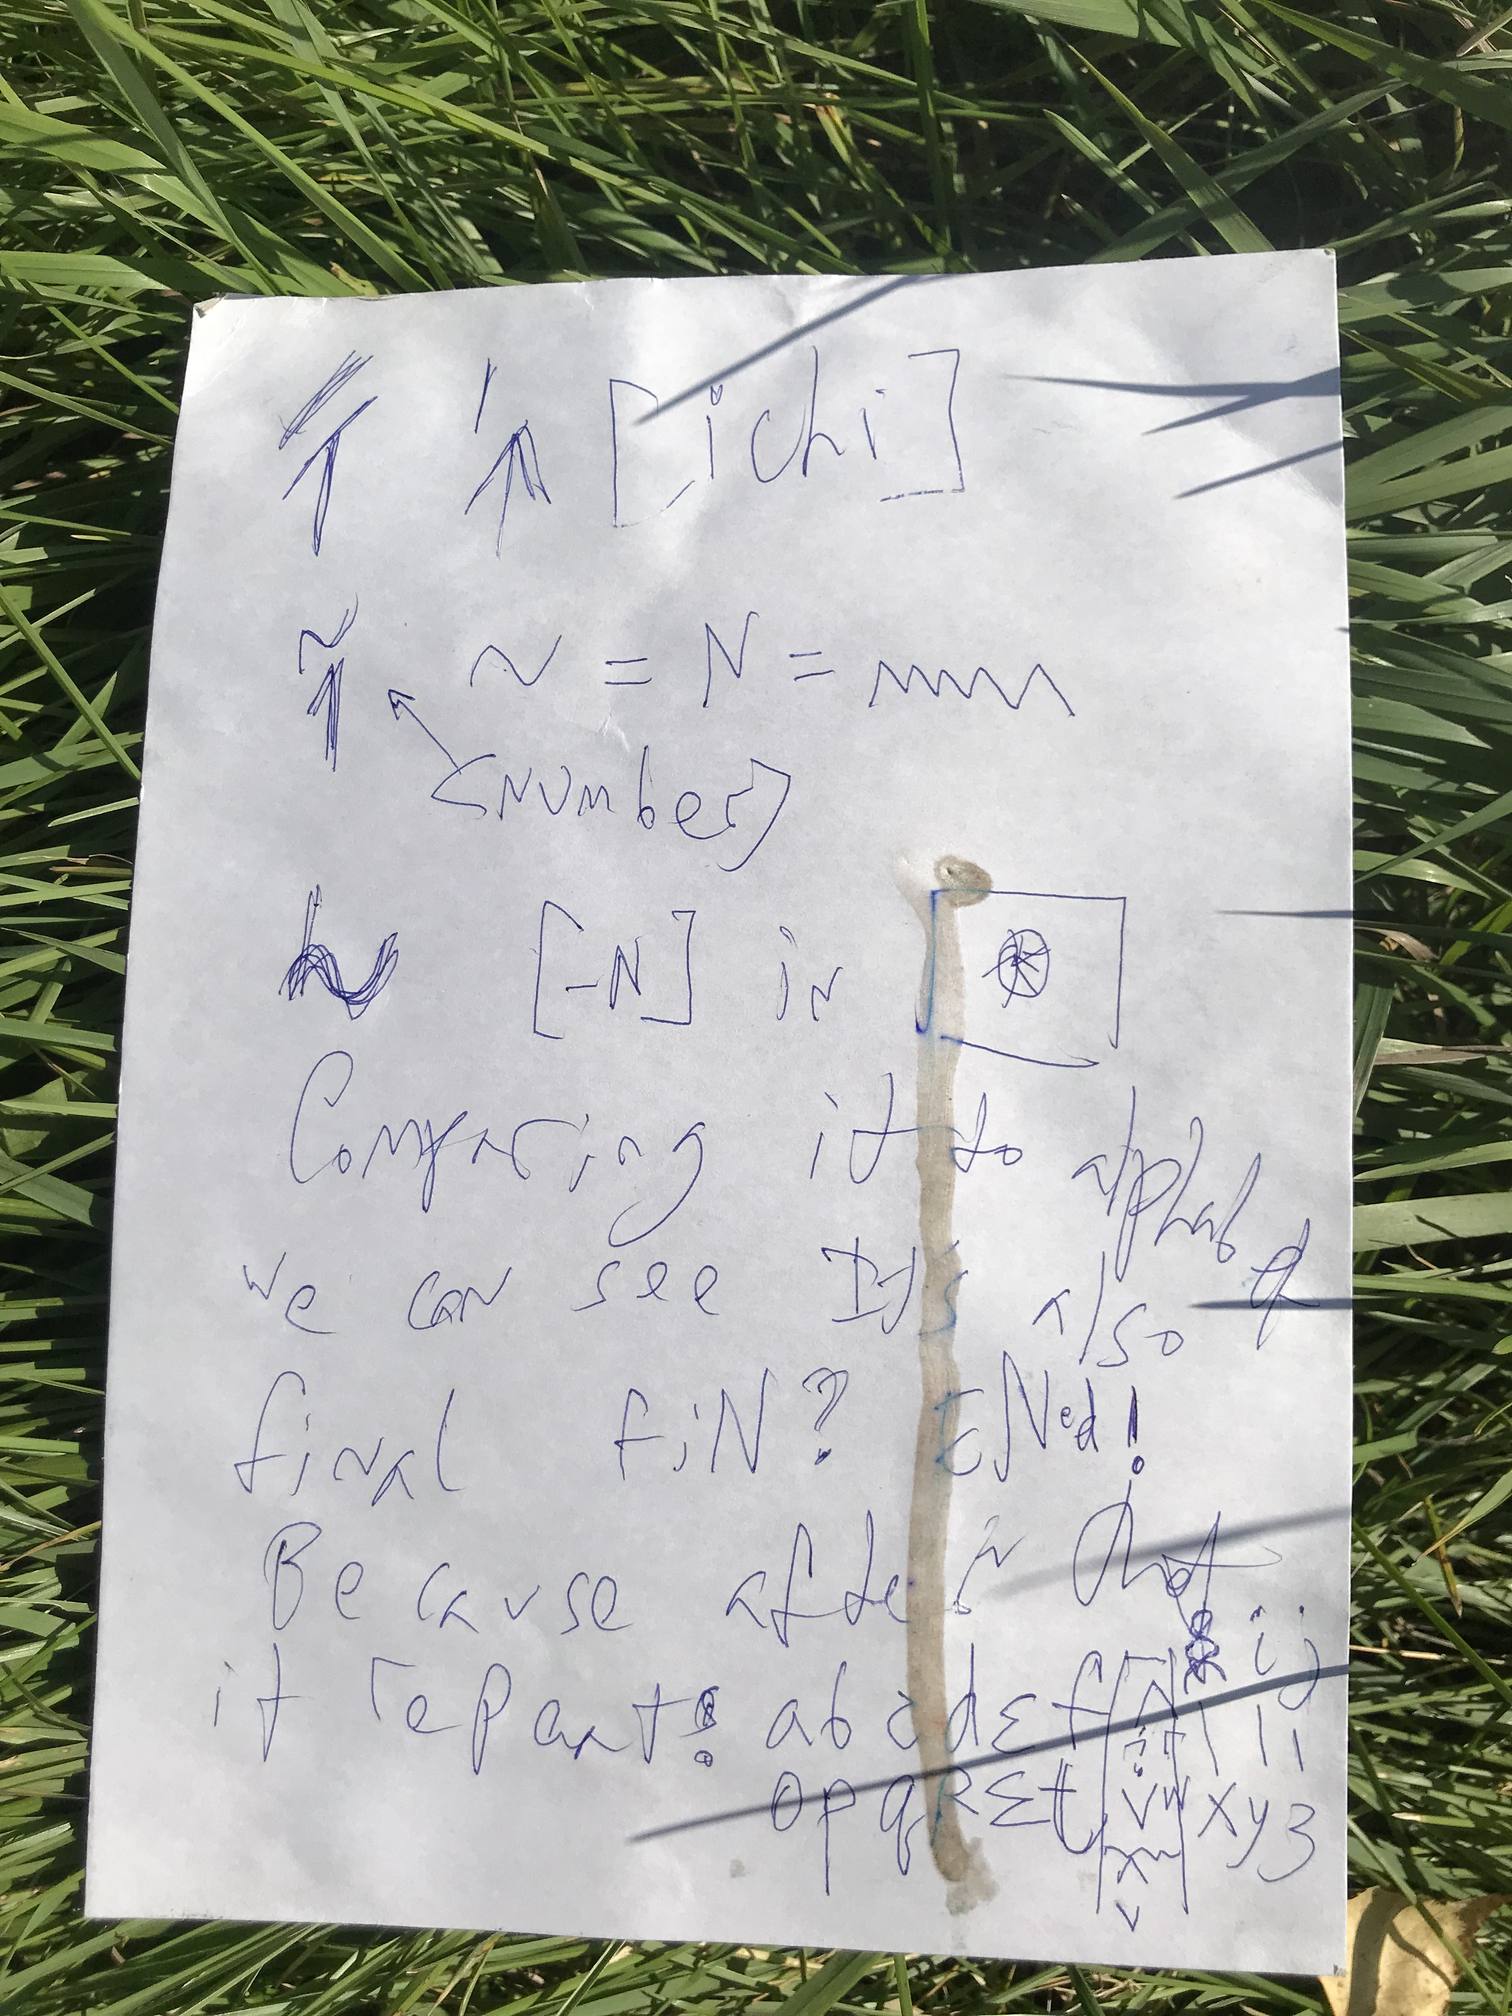 [ichi]
~ = N =
<Number]
[-N] in
Comparing it to alphabet
we can see It's also
final fiN? ENed!
Because after that
it repeat! abcdεf ij
opqRΣt vw xyz